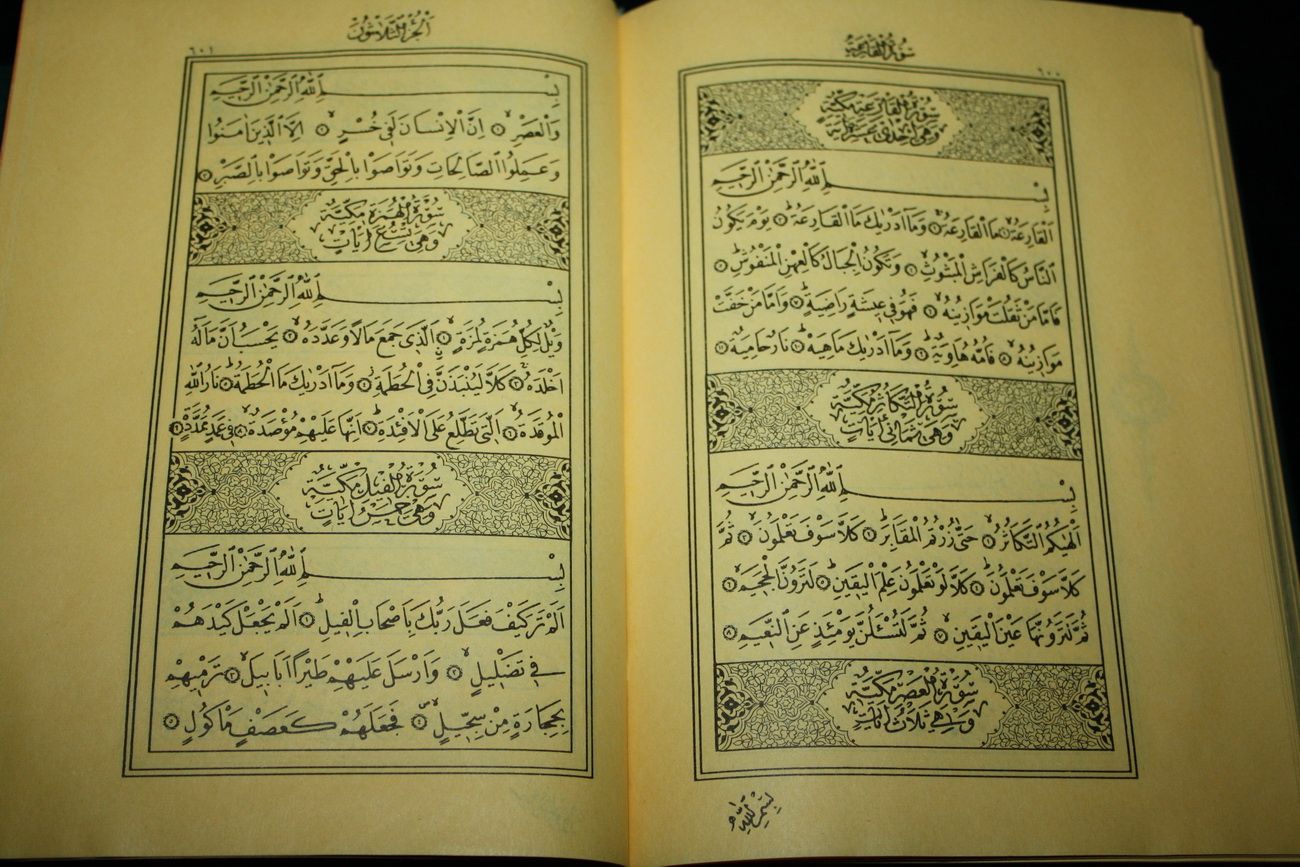 سورة القارعة
٦٠٠
سورة القارعة مكية
وهي احدى عشرة اية
بِسْمِ اللّٰهِ الرَّحْمٰنِ الرَّحِيمِ
اَلْقَارِعَةُ ۙ ١ مَا الْقَارِعَةُ ۚ ٢ وَمَٓا اَدْرٰيكَ مَا الْقَارِعَةُ ۜ ٣ يَوْمَ يَكُونُ
النَّاسُ كَالْفَرَاشِ الْمَبْثُوثِ ۙ ٤ وَتَكُونُ الْجِبَالُ كَالْعِهْنِ الْمَنْفُوشِ ۜ ٥
فَاَمَّا مَنْ ثَقُلَتْ مَوَازٖينُهُ ۙ ٦ فَهُوَ فٖي عٖيشَةٍ رَاضِيَةٍ ۜ ٧ وَاَمَّا مَنْ خَفَّتْ
مَوَازٖينُهُ ۙ ٨ فَاُمُّهُ هَاوِيَةٌ ۜ ٩ وَمَٓا اَدْرٰيكَ مَاهِيَهْ ۜ ١٠ نَارٌ حَامِيَةٌ ١١
سورة التكاثر مكية
وهي ثماني ايات
بِسْمِ اللّٰهِ الرَّحْمٰنِ الرَّحِيمِ
اَلْهٰيكُمُ التَّكَاثُرُ ۙ ١ حَتّٰى زُرْتُمُ الْمَقَابِرَ ۜ ٢ كَلَّا سَوْفَ تَعْلَمُونَ ۙ ٣ ثُمَّ
كَلَّا سَوْفَ تَعْلَمُونَ ۜ ٤ كَلَّا لَوْ تَعْلَمُونَ عِلْمَ الْيَقٖينِ ۜ ٥ لَتَرَوُنَّ الْجَحٖيمَ ۙ ٦
ثُمَّ لَتَرَوُنَّهَا عَيْنَ الْيَقٖينِ ۙ ٧ ثُمَّ لَتُسْـَٔلُنَّ يَوْمَئِذٍ عَنِ النَّعٖيمِ ٨
سورة العصر مكية
وهي ثلاث ايات
بِسْمِ اللّٰهِ
الجزء الثلاثون
٦٠١
بِسْمِ اللّٰهِ الرَّحْمٰنِ الرَّحِيمِ
وَالْعَصْرِ ۙ ١ اِنَّ الْاِنْسَانَ لَفٖي خُسْرٍ ۙ ٢ اِلَّا الَّذٖينَ اٰمَنُوا
وَعَمِلُوا الصَّالِحَاتِ وَتَوَاصَوْا بِالْحَقِّ وَتَوَاصَوْا بِالصَّبْرِ ٣
سورة الهمزة مكية
وهي تسع ايات
بِسْمِ اللّٰهِ الرَّحْمٰنِ الرَّحِيمِ
وَيْلٌ لِكُلِّ هُمَزَةٍ لُمَزَةٍ ۙ ١ اَلَّذٖي جَمَعَ مَالًا وَعَدَّدَهُ ۙ ٢ يَحْسَبُ اَنَّ مَالَهُٓ
اَخْلَدَهُ ۚ ٣ كَلَّا لَيُنْبَذَنَّ فِي الْحُطَمَةِ ۘ ٤ وَمَٓا اَدْرٰيكَ مَا الْحُطَمَةُ ۜ ٥ نَارُ اللّٰهِ
الْمُوقَدَةُ ۙ ٦ اَلَّتٖي تَطَّلِعُ عَلَى الْاَفْـِٔدَةِ ۜ ٧ اِنَّهَا عَلَيْهِمْ مُؤْصَدَةٌ ۙ ٨ فٖي عَمَدٍ مُمَدَّدَةٍ ٩
سورة الفيل مكية
وهي خمس ايات
بِسْمِ اللّٰهِ الرَّحْمٰنِ الرَّحِيمِ
اَلَمْ تَرَ كَيْفَ فَعَلَ رَبُّكَ بِاَصْحَابِ الْفٖيلِ ۜ ١ اَلَمْ يَجْعَلْ كَيْدَهُمْ
فٖي تَضْلٖيلٍ ۙ ٢ وَاَرْسَلَ عَلَيْهِمْ طَيْرًا اَبَابٖيلَ ۙ ٣ تَرْمٖيهِمْ
بِحِجَارَةٍ مِنْ سِجّٖيلٍ ۙ ٤ فَجَعَلَهُمْ كَعَصْفٍ مَأْكُولٍ ٥